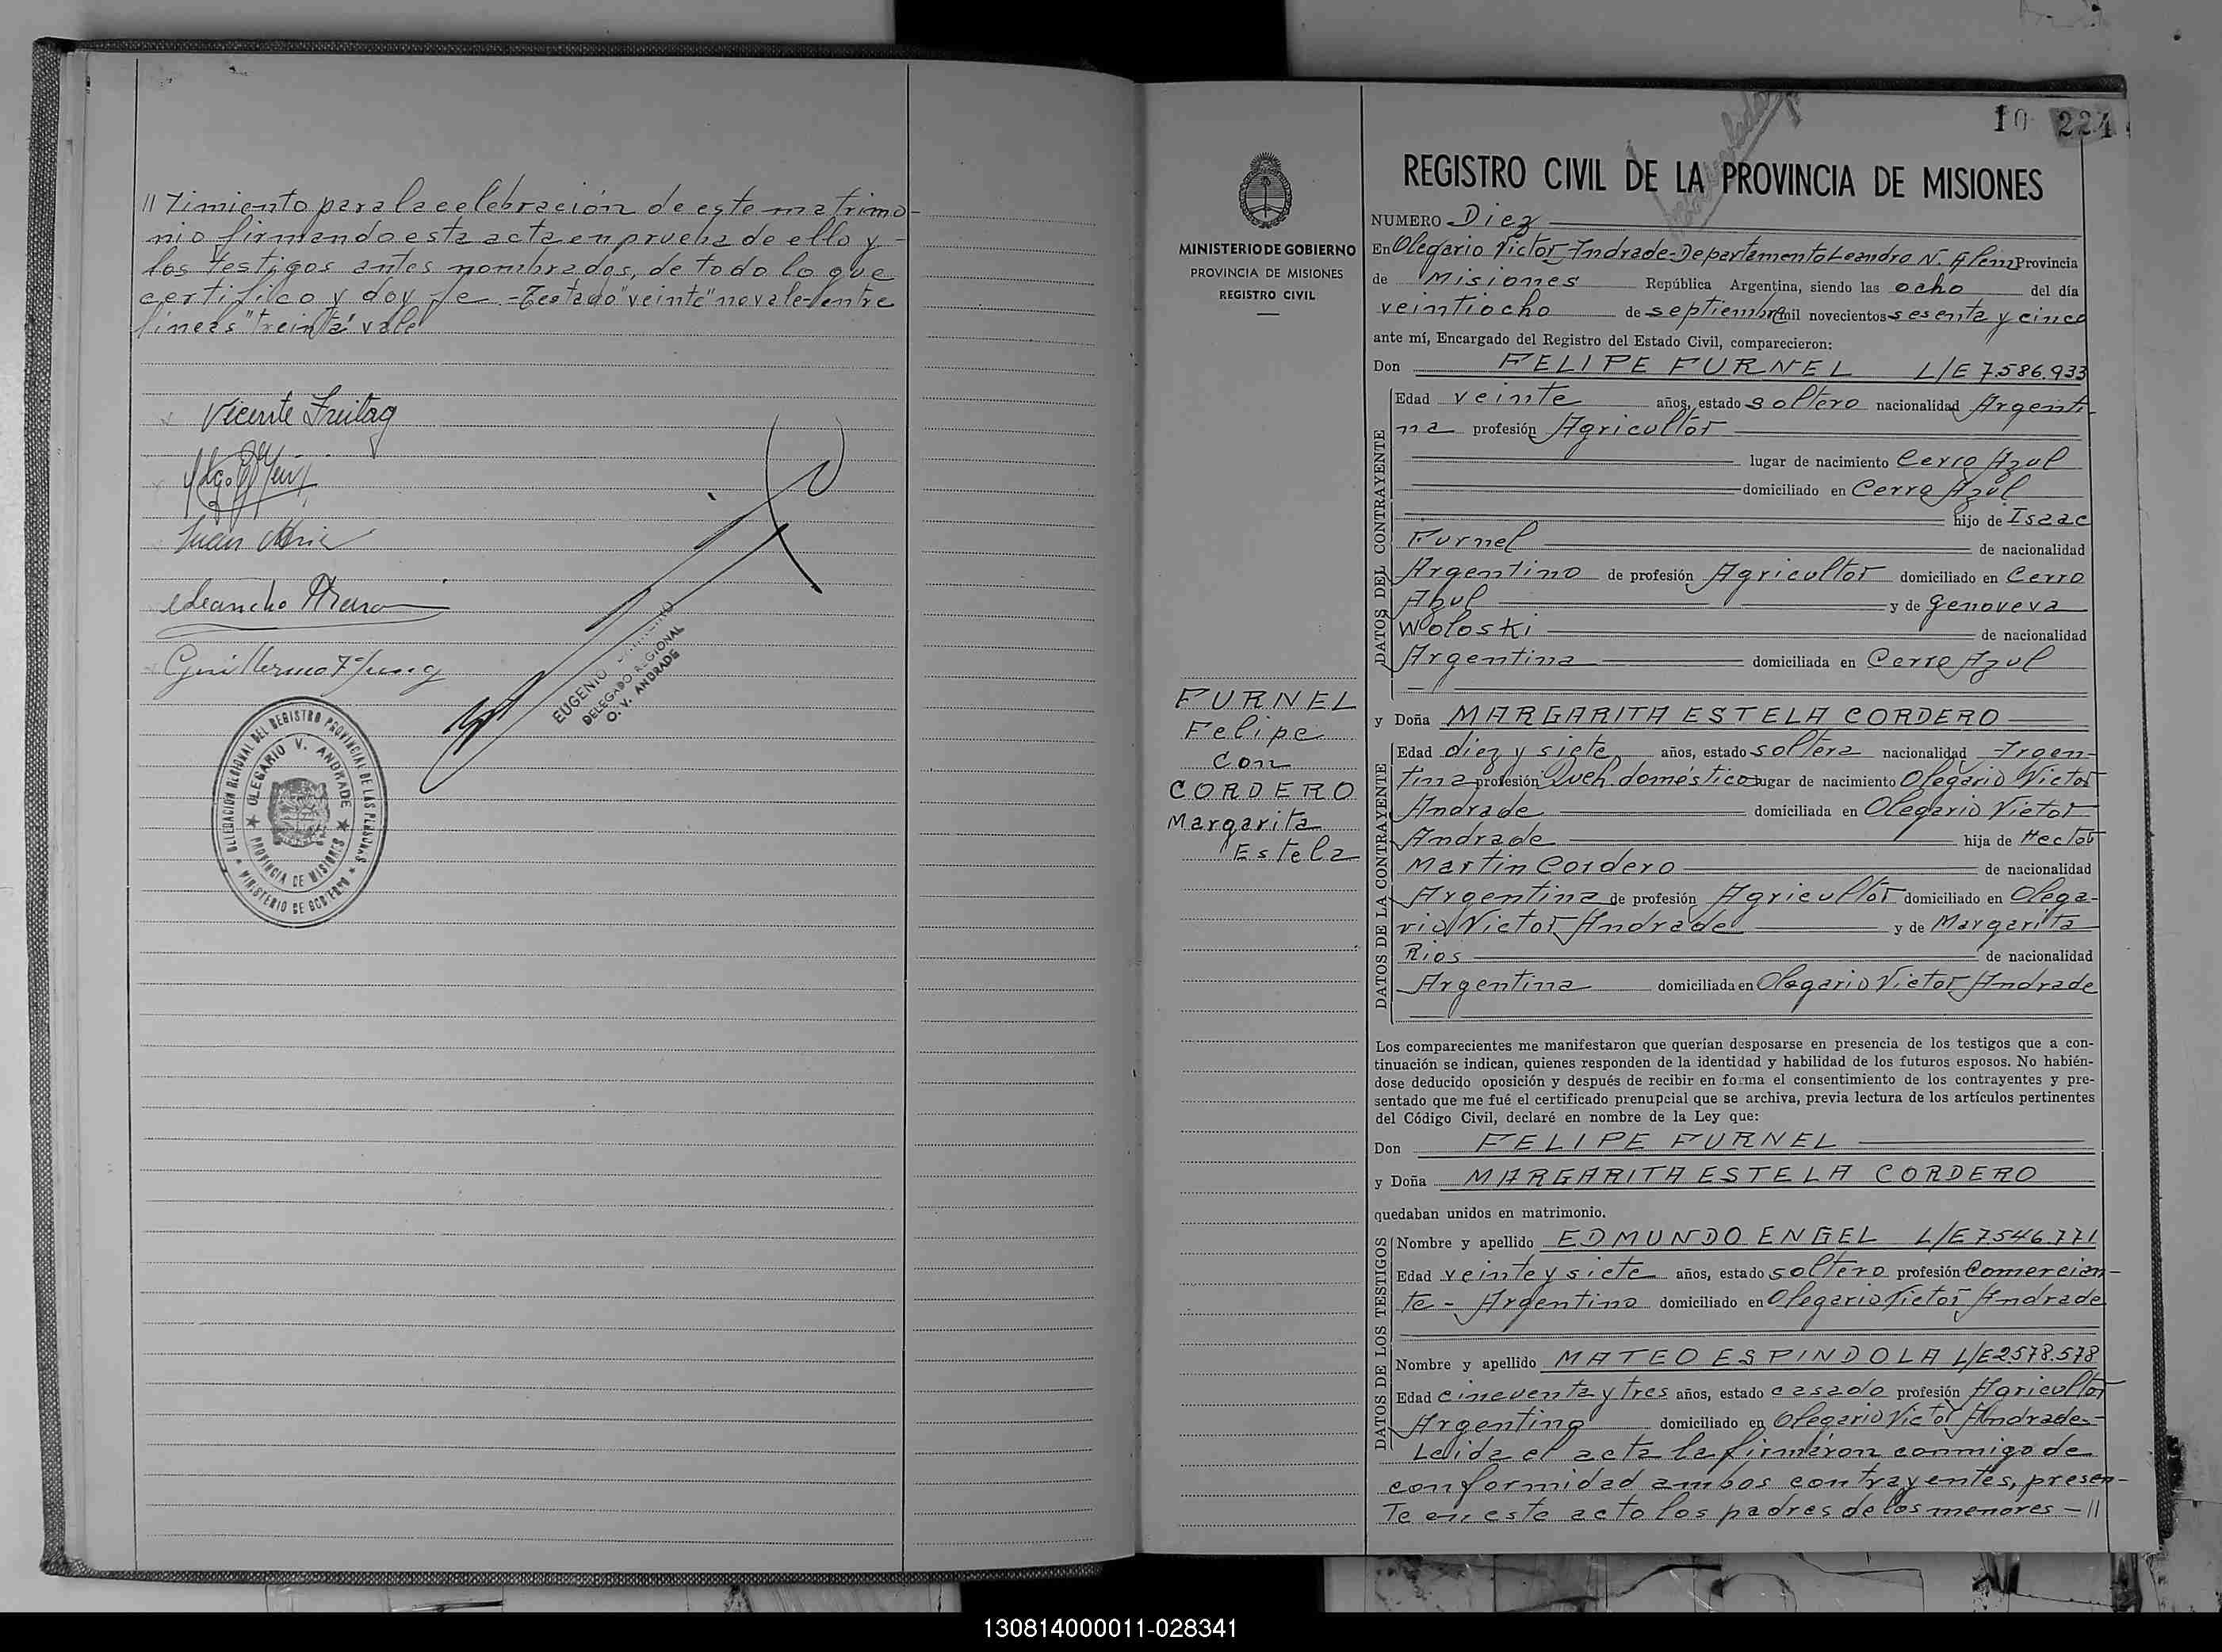 // timiento para la celebración de este matrimo-
nio firmando esta acta en prueba de ello y -
los testigos antes nombrados, de todo lo que
certifico y doy fe - Testado "veinte" no vale - entre
líneas "treinta" vale
Vicente Freitag
Juan
Guillermo
EUGENIO
DELEGADO REGIONAL
O. V. ANDRADE
DELEGACION REGIONAL DEL REGISTRO PROVINCIAL DE LAS PERSONAS
★ OLEGARIO V. ANDRADE ★
PROVINCIA DE MISIONES
* MINISTERIO DE GOBIERNO *
10 224
REGISTRO CIVIL DE LA PROVINCIA DE MISIONES
MINISTERIO DE GOBIERNO
PROVINCIA DE MISIONES
REGISTRO CIVIL
FURNEL
Felipe
con
CORDERO
Margarita
Estela
NUMERO Diez
En Olegario Victor Andrade - Departamento Leandro N. Alem Provincia
de Misiones República Argentina, siendo las ocho del día
veintiocho de septiembre mil novecientos sesenta y cinco
ante mí, Encargado del Registro del Estado Civil, comparecieron:
Don FELIPE FURNEL L/E 7.586.933
DATOS DEL CONTRAYENTE
Edad veinte años, estado soltero nacionalidad Argenti-
na profesión Agricultor
lugar de nacimiento Cerro Azul
domiciliado en Cerro Azul
hijo de Isaac
Furnel de nacionalidad
Argentino de profesión Agricultor domiciliado en Cerro
Azul y de Genoveva
Woloski de nacionalidad
Argentina domiciliada en Cerro Azul
y Doña MARGARITA ESTELA CORDERO
DATOS DE LA CONTRAYENTE
Edad diez y siete años, estado soltera nacionalidad Argen-
tina profesión Queh. doméstico lugar de nacimiento Olegario Victor
Andrade domiciliada en Olegario Victor
Andrade hija de Hector
Martin Cordero de nacionalidad
Argentina de profesión Agricultor domiciliado en Olega-
rio Victor Andrade y de Margarita
Rios de nacionalidad
Argentina domiciliada en Olegario Victor Andrade
Los comparecientes me manifestaron que querían desposarse en presencia de los testigos que a con-
tinuación se indican, quienes responden de la identidad y habilidad de los futuros esposos. No habién-
dose deducido oposición y después de recibir en forma el consentimiento de los contrayentes y pre-
sentado que me fué el certificado prenupcial que se archiva, previa lectura de los artículos pertinentes
del Código Civil, declaré en nombre de la Ley que:
Don FELIPE FURNEL
y Doña MARGARITA ESTELA CORDERO
quedaban unidos en matrimonio.
DATOS DE LOS TESTIGOS
Nombre y apellido EDMUNDO ENGEL L/E 7546.771
Edad veinte y siete años, estado soltero profesión Comercian-
te - Argentino domiciliado en Olegario Victor Andrade
Nombre y apellido MATEO ESPINDOLA L/E 2578.578
Edad cincuenta y tres años, estado casado profesión Agricultor
Argentino domiciliado en Olegario Victor Andrade -
Leída el acta la firmaron conmigo de
conformidad ambos contrayentes, presen-
te en este acto los padres de los menores - //
130814000011-028341